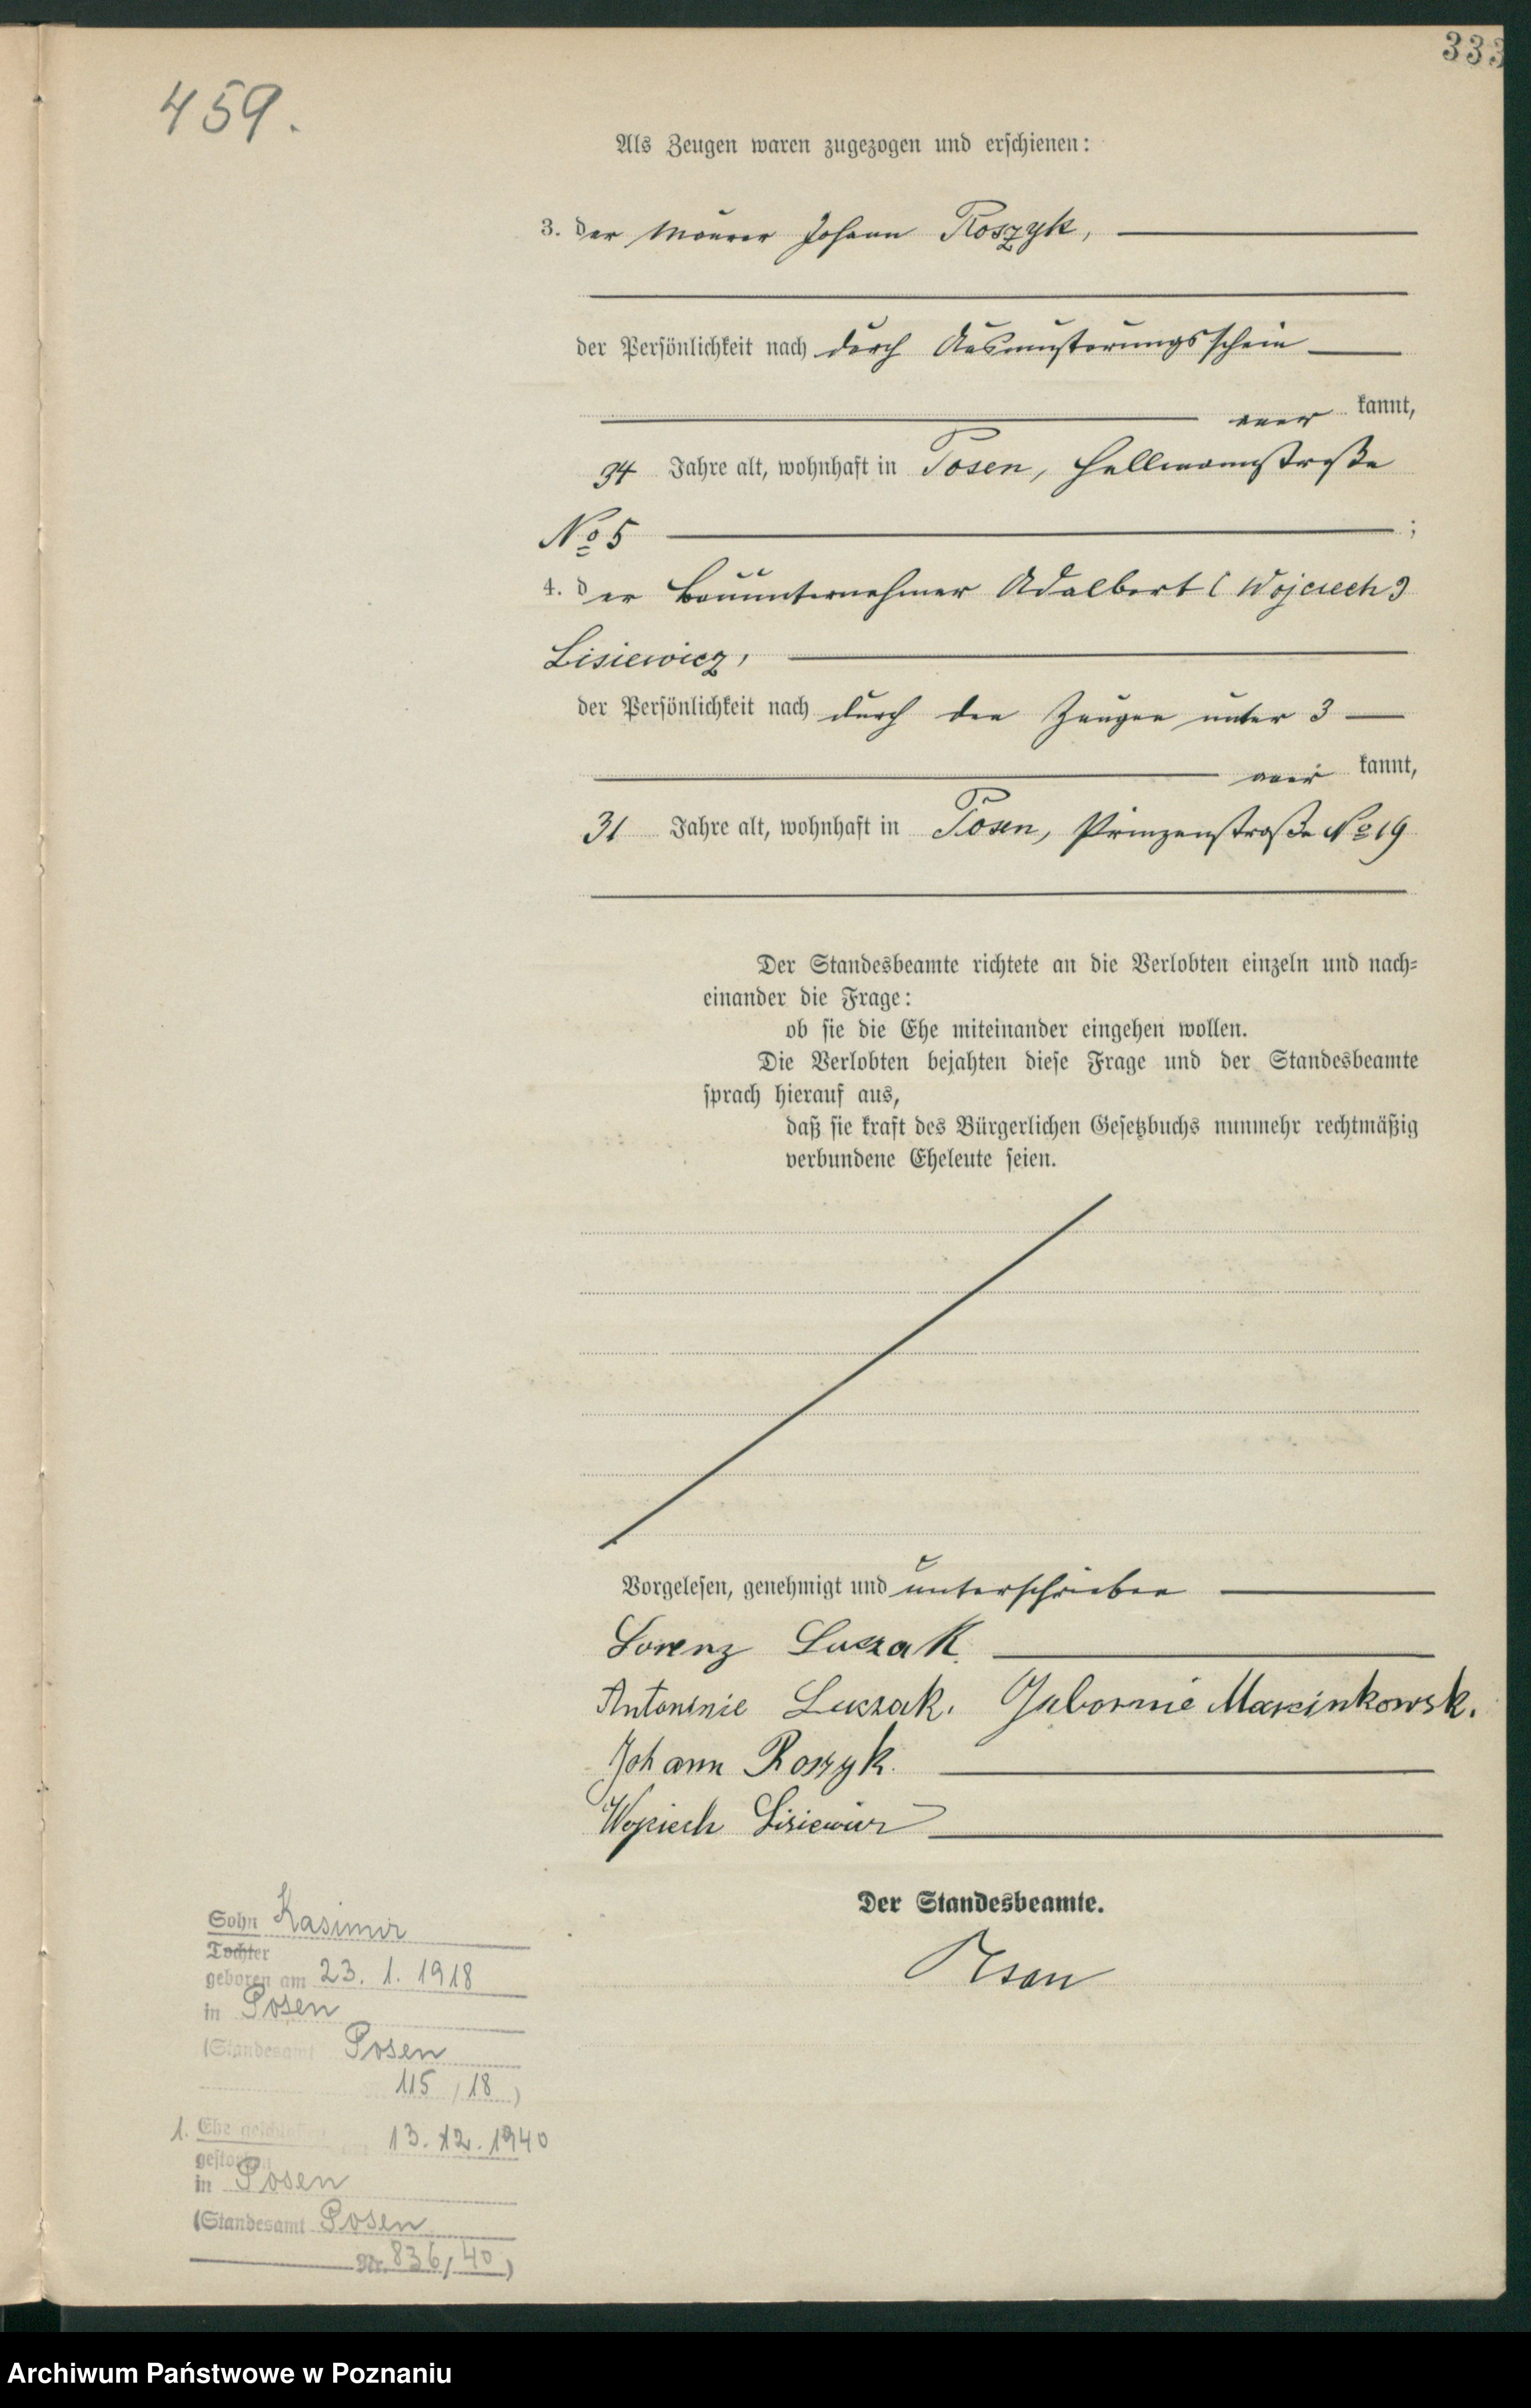 333
459.
Als Zeugen waren zugezogen und erschienen:
3. der Maurer Johann Roszyk,
der Persönlichkeit nach durch Ausmusterungsschein
kannt,
34 Jahre alt, wohnhaft in Posen, Hellmannstraße
No 5 ;
4. der Bauunternehmer Adalbert (Wojciech)
Lisiewicz,
der Persönlichkeit nach durch den Zeugen unter 3
kannt,
31 Jahre alt, wohnhaft in Posen, Prinzenstraße No 19
Der Standesbeamte richtete an die Verlobten einzeln und nach-
einander die Frage:
ob sie die Ehe miteinander eingehen wollen.
Die Verlobten bejahten diese Frage und der Standesbeamte
sprach hierauf aus,
daß sie kraft des Bürgerlichen Gesetzbuchs nunmehr rechtmäßig
verbundene Eheleute seien.
Vorgelesen, genehmigt und unterschrieben
Lorenz Luczak
Antoninie Luczak. Marcinkowsk.
Johann Roszyk.
Wojciech Lisiewicz
Der Standesbeamte.
Sohn Kasimir
Tochter
geboren am 23. 1. 1918
in Posen
(Standesamt Posen
115 / 18)
1. Ehe geschlossen am 13. 12. 1940
gestorben
in Posen
(Standesamt Posen
Nr. 836/40)
Archiwum Państwowe w Poznaniu